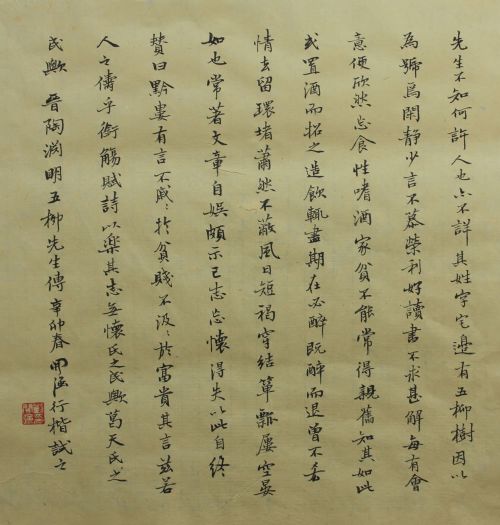 先生不知何許人也亦不詳其姓字宅邊有五柳樹因以
為號焉閑靜少言不慕榮利好讀書不求甚解每有會
意便欣然忘食性嗜酒家貧不能常得親舊知其如此
或置酒而招之造飲輒盡期在必醉既醉而退曾不吝
情去留環堵蕭然不蔽風日短褐穿結簞瓢屢空晏
如也常著文章自娛頗示己志忘懷得失以此自終
贊曰黔婁有言不戚〻於貧賤不汲〻於富貴其言茲若
人之儔乎銜觴賦詩以樂其志無懷氏之民歟葛天氏之
民歟 晉陶淵明五柳先生傳辛卯春行楷試之